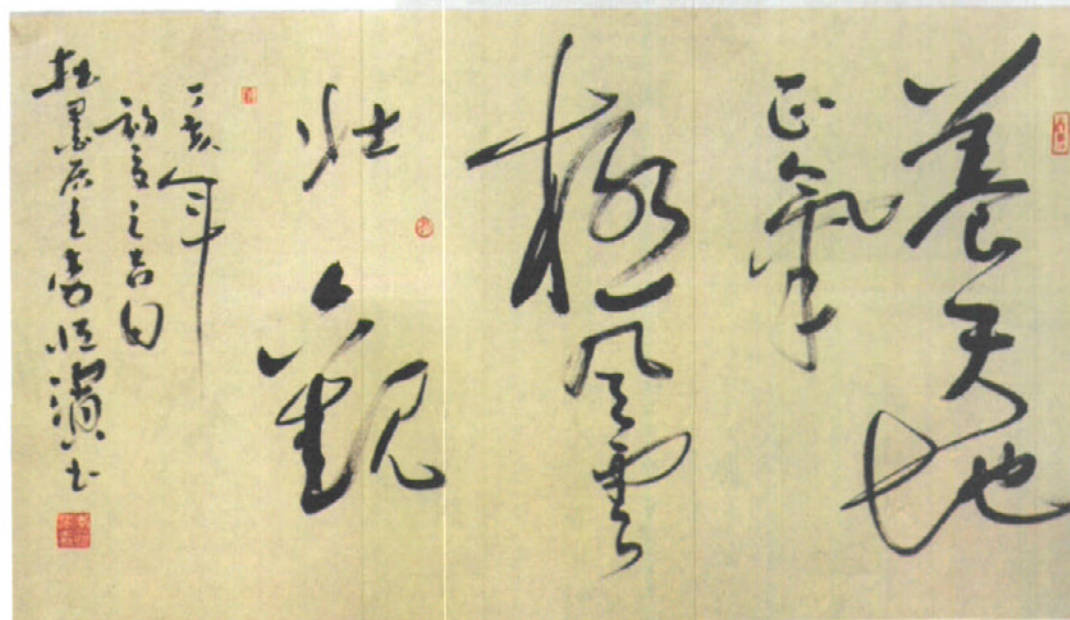 養天地
正氣
極風雲
壯觀
丁亥年
初夏之吉日
拙墨居主
恒濱书